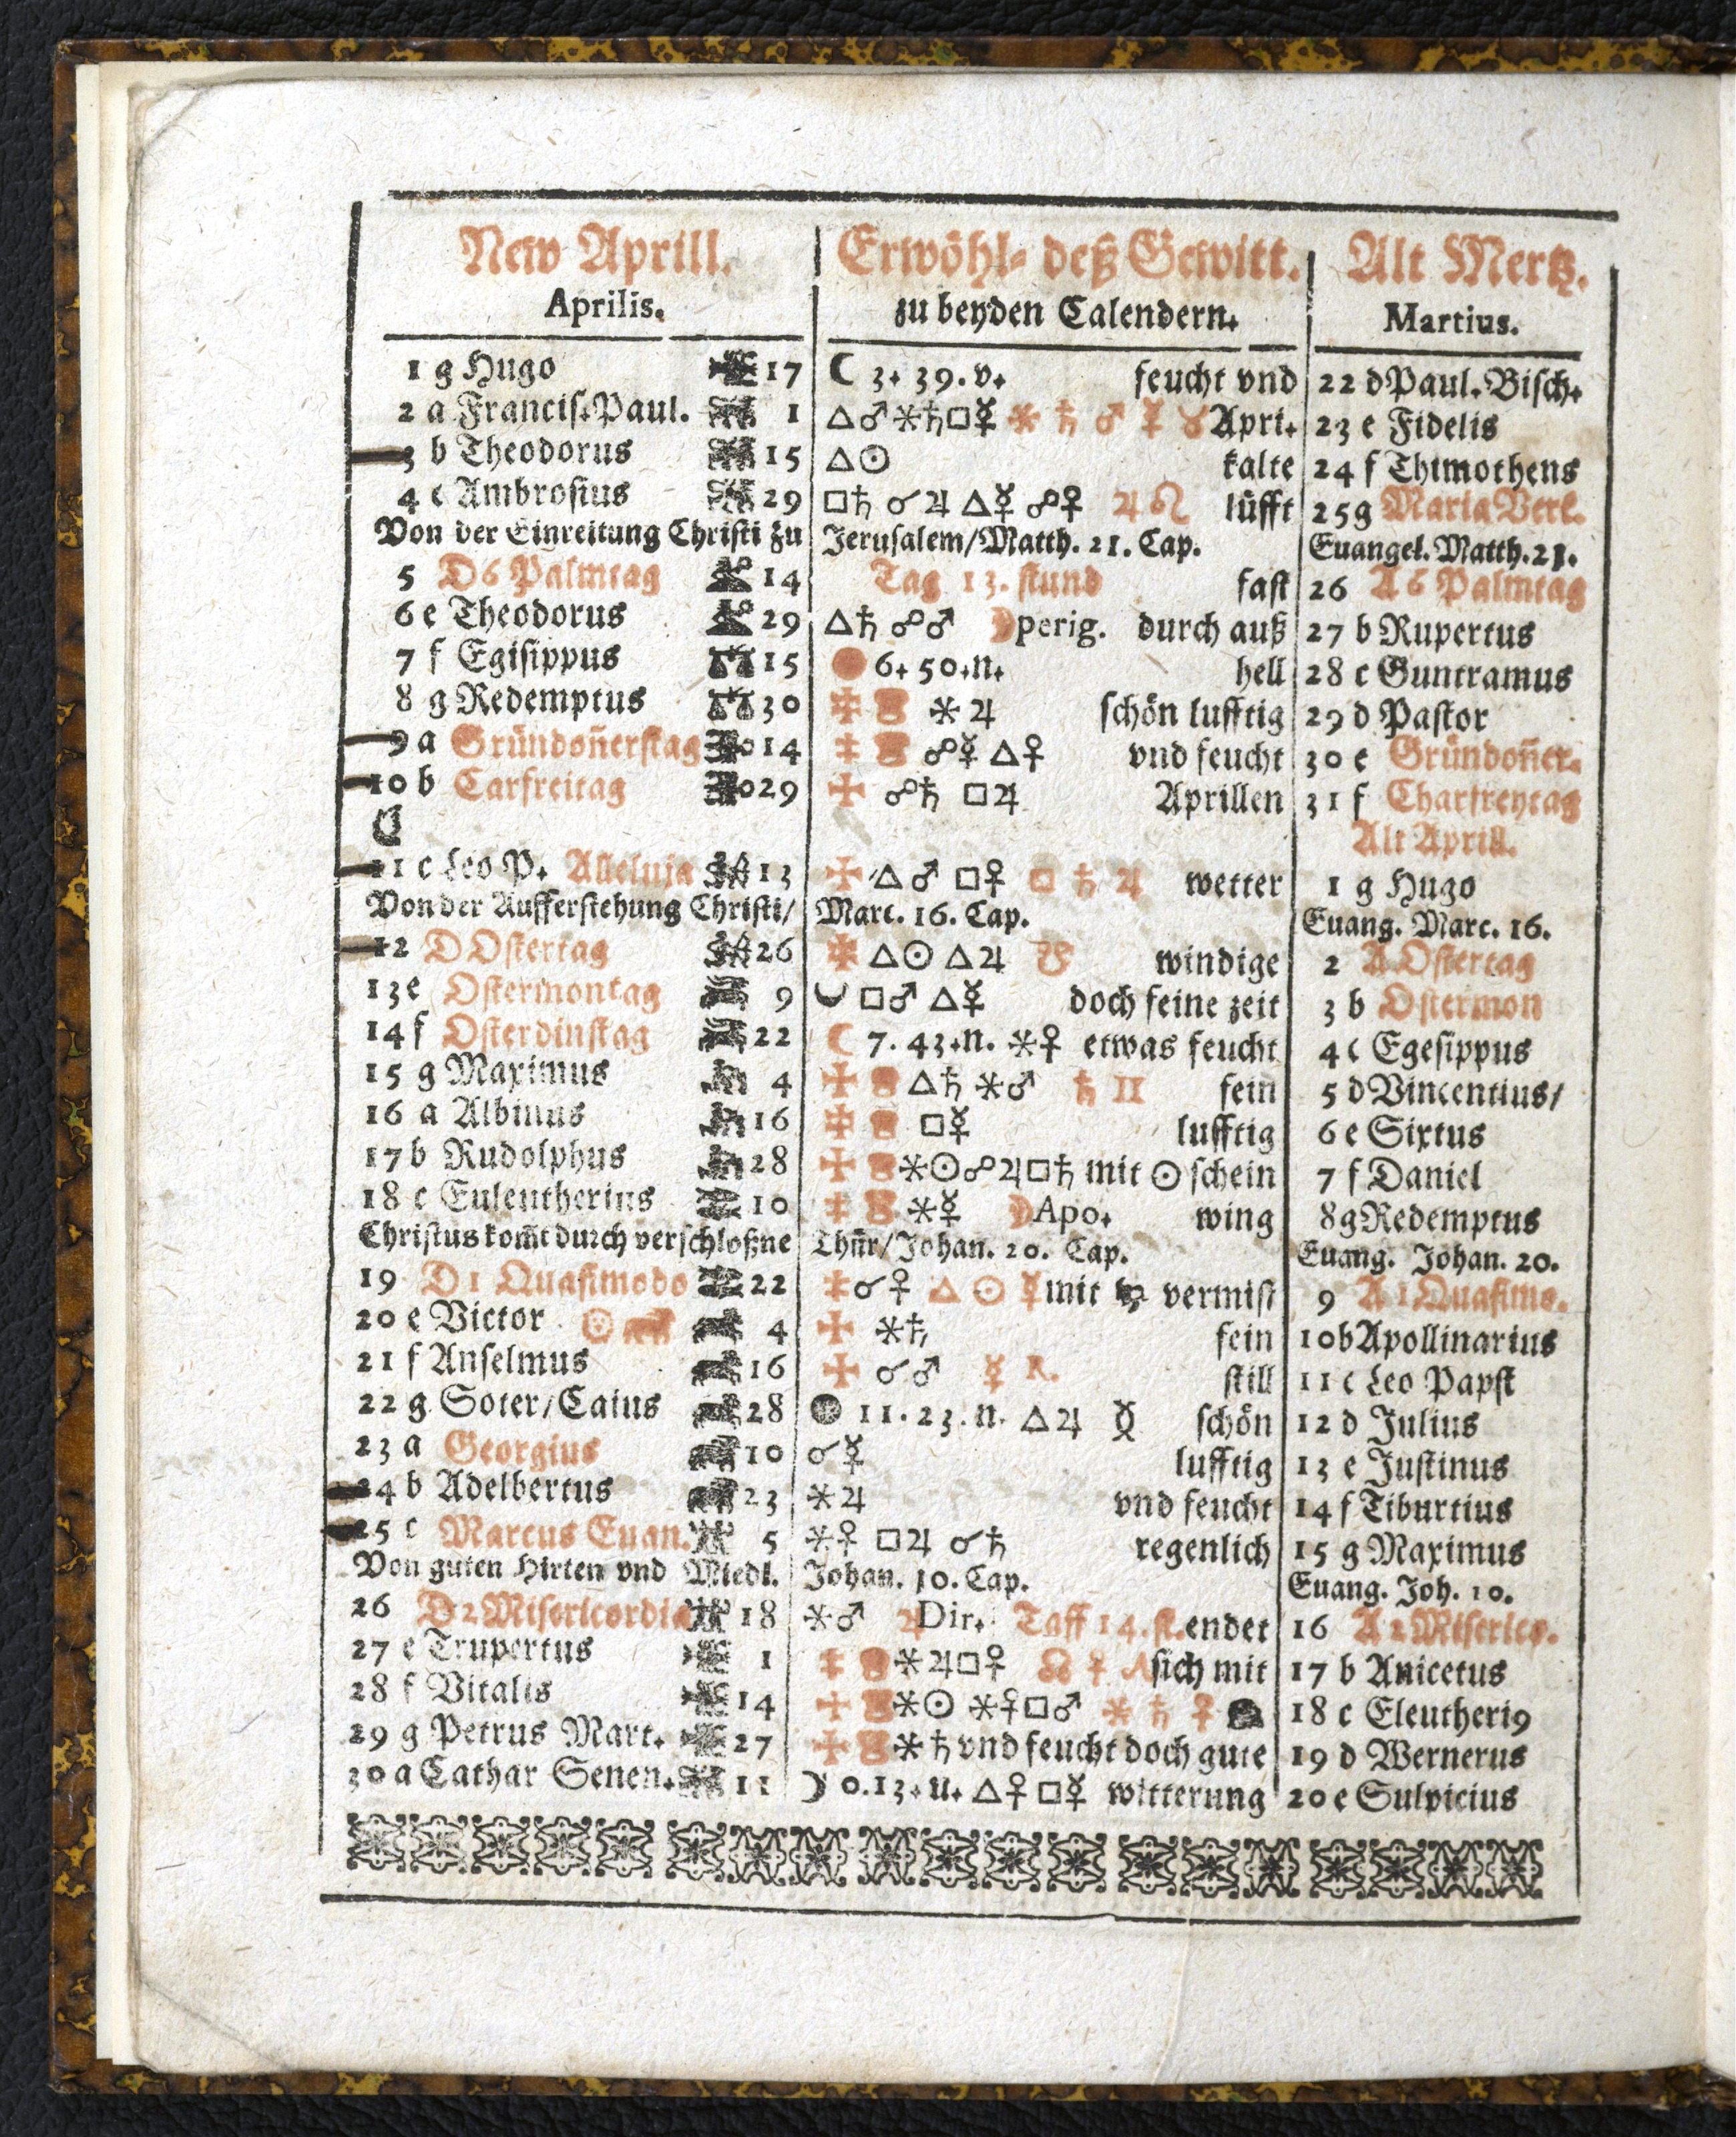 New Aprill. Erwöhl- deß Gewitt. Alt Mertz.
Aprilis. zu beyden Calendern. Martius.
1 g Hugo 17 ☾ 3. 39. v. feucht vnd 22 d Paul. Bisch.
2 a Francis. Paul. 1 △♂✶♄□☿ ✶ ♄ ♂ ☿ ♉ Apri. 23 e Fidelis
3 b Theodorus 15 △☉ kalte 24 f Thimotheus
4 c Ambrosius 29 □♄ ☌♃ △☿ ☍♀ ♃ ♌ lüfft 25 g Maria Verk.
Von der Einreitung Christi zu Jerusalem/Matth. 21. Cap. Euangel. Matth. 21.
5 D 6 Palmtag 14 Tag 13. stund fast 26 A 6 Palmtag
6 e Theodorus 29 △♄ ☍♂ ☽perig. durch auß 27 b Rupertus
7 f Egisippus 15 6. 50. n. hell 28 c Guntramus
8 g Redemptus 30 ✶♃ schön lufftig 29 d Pastor
9 a Gründoñerstag 14 ☍☿ △♀ vnd feucht 30 e Gründoñer.
10 b Carfreitag 29 ☍♄ □♃ Aprillen 31 f Charfreytag
Alt Aprill.
11 c Leo P. Alleluja 13 △♂ □♀ □ ♄ ♃ wetter 1 g Hugo
Von der Aufferstehung Christi/ Marc. 16. Cap. Euang. Marc. 16.
12 D Ostertag 26 △☉ △♃ ☋ windige 2 A Ostertag
13 e Ostermontag 9 □♂ △☿ doch feine zeit 3 b Ostermon
14 f Osterdinstag 22 ☾ 7. 43. n. ✶♀ etwas feucht 4 c Egesippus
15 g Maximus 4 △♄ ✶♂ ♄ II fein 5 d Vincentius/
16 a Albinus 16 □☿ lufftig 6 e Sixtus
17 b Rudolphus 28 ✶☉☍♃□♄ mit ☉ schein 7 f Daniel
18 c Euleutherius 10 ✶☿ ☽Apo. wing 8 g Redemptus
Christus kom̃t durch verschloßne Thür/Johan. 20. Cap. Euang. Johan. 20.
19 D 1 Quasimodo 22 ☌♀ △ ☉ ☿ mit vermist 9 A 1 Quasimo.
20 e Victor 4 ✶♄ fein 10 b Apollinarius
21 f Anselmus 16 ☌♂ ☿ R. still 11 c Leo Papst
22 g Soter/Caius 28 11. 23. n. △♃ schön 12 d Julius
23 a Georgius 10 ☌☿ lufftig 13 e Justinus
24 b Adelbertus 23 ✶♃ vnd feucht 14 f Tiburtius
25 c Marcus Euan. 5 ✶♀ □♃ ☌♄ regenlich 15 g Maximus
Von guten Hirten vnd Miedl. Johan. 10. Cap. Euang. Joh. 10.
26 D 2 Misericordia 18 ✶♂ ♃Dir. 14. st. endet 16 A 2 Miserico.
27 e Trupertus 1 ✶♃□♀ ☊ ☿ sich mit 17 b Anicetus
28 f Vitalis 14 ✶☉ ✶☿□♂ ✶ ♄ ☿ 18 c Eleutheri9
29 g Petrus Mart. 27 ✶♄ vnd feucht doch gute 19 d Wernerus
30 a Cathar Senen. 11 ☽ 0. 13. n. △♀ □☿ witterung 20 e Sulpicius